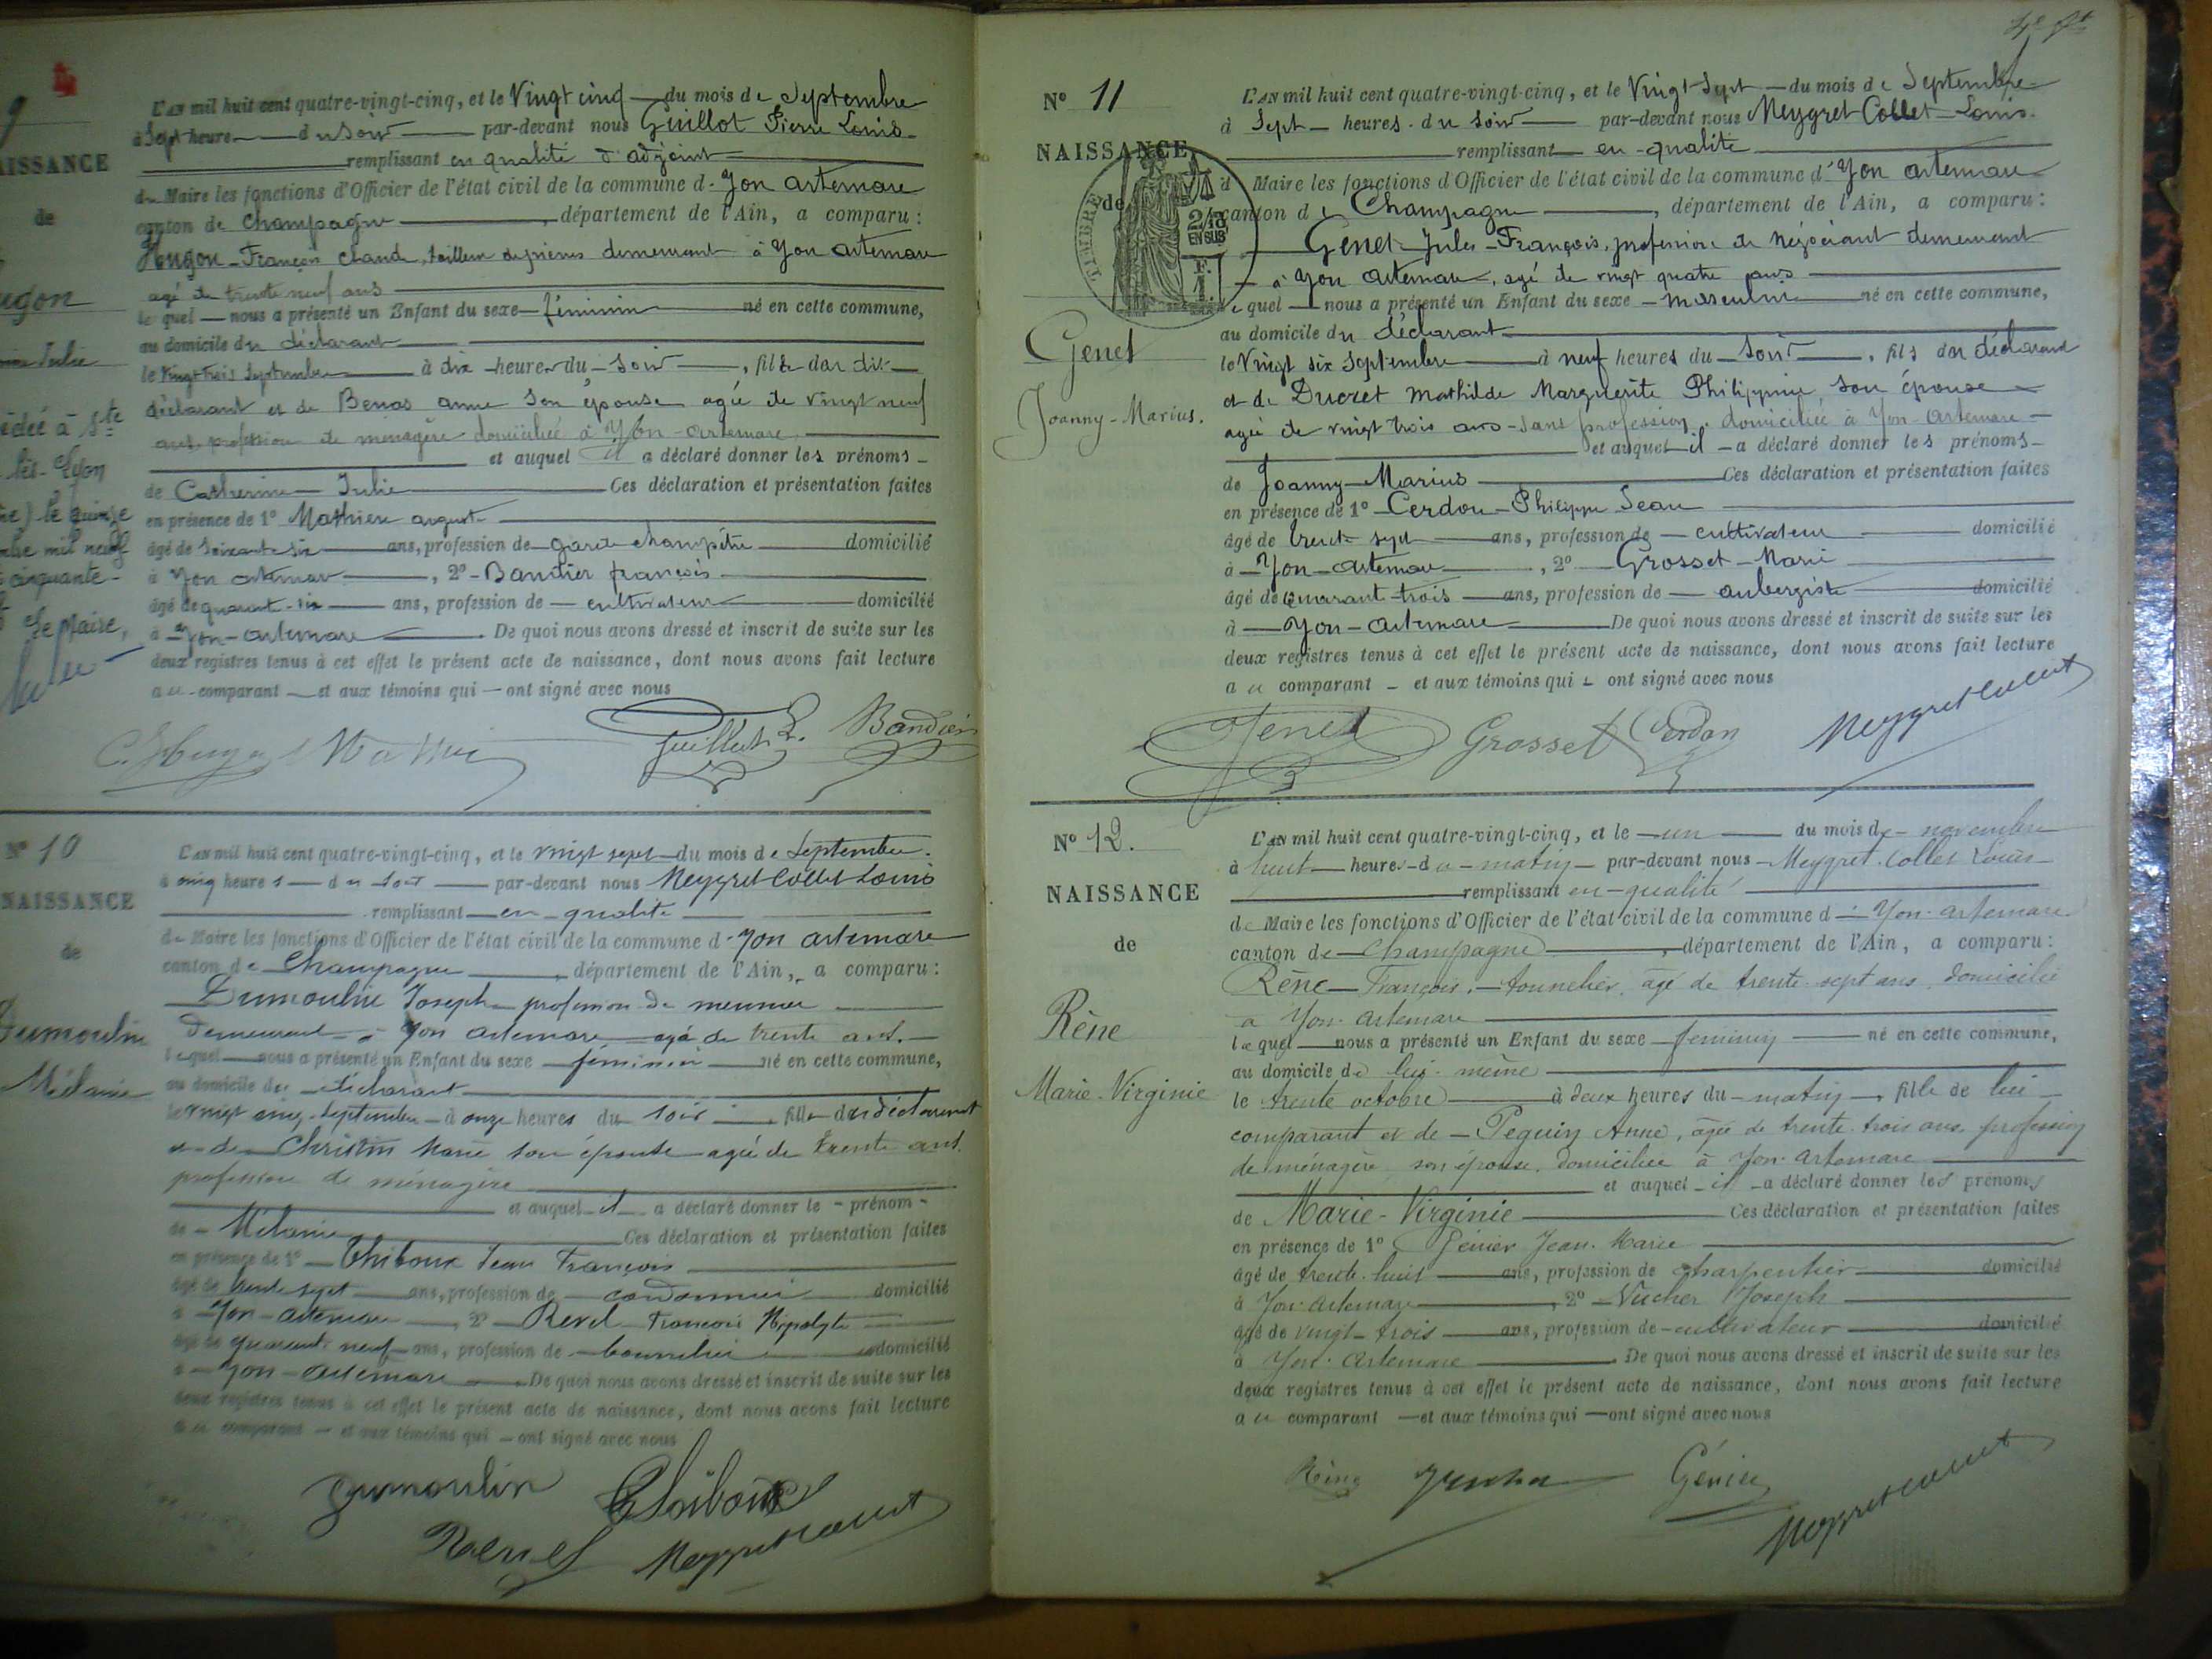 9
NAISSANCE
de
ugon
Julie
cédée à Ste
lès-Lyon
le quinze
mil neuf
cinquante-
Le Maire,
L'AN mil huit cent quatre-vingt-cinq, et le Vingt cinq du mois de Septembre
à Sept heures du soir par-devant nous Guillot Pierre Louis
remplissant en qualité d'adjoint
du Maire les fonctions d'Officier de l'état civil de la commune d'Yon artemare
canton de Champagne, département de l'Ain, a comparu :
Hugon François Claude, tailleur de pierres demeurant à Yon artemare
agé de trente neuf ans
lequel nous a présenté un Enfant du sexe féminin né en cette commune,
au domicile du déclarant
le vingt trois Septembre à dix heures du soir, fille du dit
déclarant et de Benas anne son épouse agée de vingt neuf
ans profession de menagère domiciliée à Yon-artemare
et auquel il a déclaré donner les prénoms
de Catherine Julie Ces déclaration et présentation faites
en présence de 1° Mathieu auguste
âgé de soixante six ans, profession de garde champêtre domicilié
à Yon artemare, 2° Bandier françois
âgé de quarante-six ans, profession de cultivateur domicilié
à Yon-artemare. De quoi nous avons dressé et inscrit de suite sur les
deux registres tenus à cet effet le présent acte de naissance, dont nous avons fait lecture
au comparant et aux témoins qui ont signé avec nous
Guillot P. Bandier
N° 10
NAISSANCE
de
Dumoulin
Mélanie
L'AN mil huit cent quatre-vingt-cinq, et le vingt sept du mois de Septembre
à cinq heures du soir par-devant nous Meygret-Collet Louis
remplissant en qualité
de Maire les fonctions d'Officier de l'état civil de la commune d'Yon artemare
canton de Champagne, département de l'Ain, a comparu :
Dumoulin Joseph profession de meunier
demeurant à Yon artemare agé de trente ans
lequel nous a présenté un Enfant du sexe féminin né en cette commune,
au domicile du déclarant
le vingt cinq Septembre à onze heures du soir, fille du déclarant
et de Christin Marie son épouse agée de trente ans
profession de ménagère
et auquel il a déclaré donner le prénom
de Mélanie Ces déclaration et présentation faites
en présence de 1° Thiboux Jean François
âgé de trente sept ans, profession de cordonnier domicilié
à Yon-artemare, 2° Revel François Hippolyte
âgé de quarante neuf ans, profession de domicilié
à Yon-artemare. De quoi nous avons dressé et inscrit de suite sur les
deux registres tenus à cet effet le présent acte de naissance, dont nous avons fait lecture
au comparant et aux témoins qui ont signé avec nous
Dumoulin Thiboux
Revel Meygretcollet
N° 11
NAISSANCE
de
TIMBRE
2/10
EN SUS
F.
1.
Genet
Joanny-Marius.
L'AN mil huit cent quatre-vingt-cinq, et le Vingt Sept du mois de Septembre
à Sept heures du soir par-devant nous Meygret-Collet-Louis.
remplissant en qualité
d Maire les fonctions d'Officier de l'état civil de la commune d'Yon artemare
canton de Champagne, département de l'Ain, a comparu :
Genet Jules-François, profession de Négociant demeurant
à Yon artemare, agé de vingt quatre ans
lequel nous a présenté un Enfant du sexe masculin né en cette commune,
au domicile du déclarant
le Vingt six Septembre à neuf heures du Soir, fils du déclarant
et de Ducret Mathilde Marguerite Philippine, son épouse
agée de vingt trois ans sans profession, domiciliée à Yon-Artemare
et auquel il a déclaré donner les prénoms
de Joanny-Marius Ces déclaration et présentation faites
en présence de 1° Cerdon-Philippe Jean
âgé de trente sept ans, profession de cultivateur domicilié
à Yon-artemare, 2° Grosset-Marie
âgé de quarante-trois ans, profession de aubergiste domicilié
à Yon-artemare De quoi nous avons dressé et inscrit de suite sur les
deux registres tenus à cet effet le présent acte de naissance, dont nous avons fait lecture
au comparant et aux témoins qui ont signé avec nous
Genet Grosset Cerdon Meygretcollet
N° 12.
NAISSANCE
de
Rène
Marie-Virginie
L'AN mil huit cent quatre-vingt-cinq, et le un du mois de novembre
à huit heures du matin par-devant nous Meygret-Collet Louis
remplissant en qualité
de Maire les fonctions d'Officier de l'état civil de la commune d'Yon-artemare
canton de Champagne, département de l'Ain, a comparu :
Rène François, tonnelier, agé de trente-sept ans, domicilié
à Yon-Artemare
lequel nous a présenté un Enfant du sexe feminin né en cette commune,
au domicile de lui-même
le trente octobre à deux heures du matin, fille de lui
comparant et de Peguin Anne, agée de trente-trois ans, profession
de ménagère, son épouse, domiciliée à Yon-Artemare
et auquel il a déclaré donner les prénoms
de Marie-Virginie Ces déclaration et présentation faites
en présence de 1° Génier Jean-Marie
âgé de trente-huit ans, profession de charpentier domicilié
à Yon-Artemare, 2° Vucher Joseph
âgé de vingt-trois ans, profession de cultivateur domicilié
à Yon-Artemare. De quoi nous avons dressé et inscrit de suite sur les
deux registres tenus à cet effet le présent acte de naissance, dont nous avons fait lecture
au comparant et aux témoins qui ont signé avec nous
Rène Génier
Meygretcollet